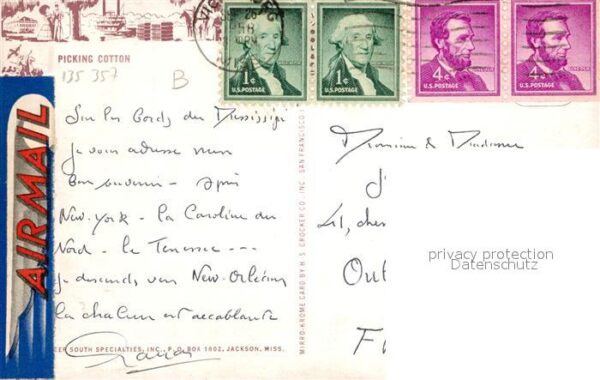 PICKING COTTON
135 357
B
1¢
U.S. POSTAGE
1¢
U.S. POSTAGE
4¢
U.S. POSTAGE
4¢
U.S. POSTAGE
AIR MAIL
Sur les bords du Mississipi
je vous adresse mon
bon souvenir - Après
New-York - la Caroline du
Nord - le Tenessee ---
je descends vers New-Orléans
la chaleur est accablante
SOUTH SPECIALTIES, INC., P. O. BOX 1802, JACKSON, MISS.
MIRRO-KROME CARD BY H. S. CROCKER CO., INC. SAN FRANCISCO
Monsieur & Madame
41, ches
Out
F
privacy protection
Datenschutz